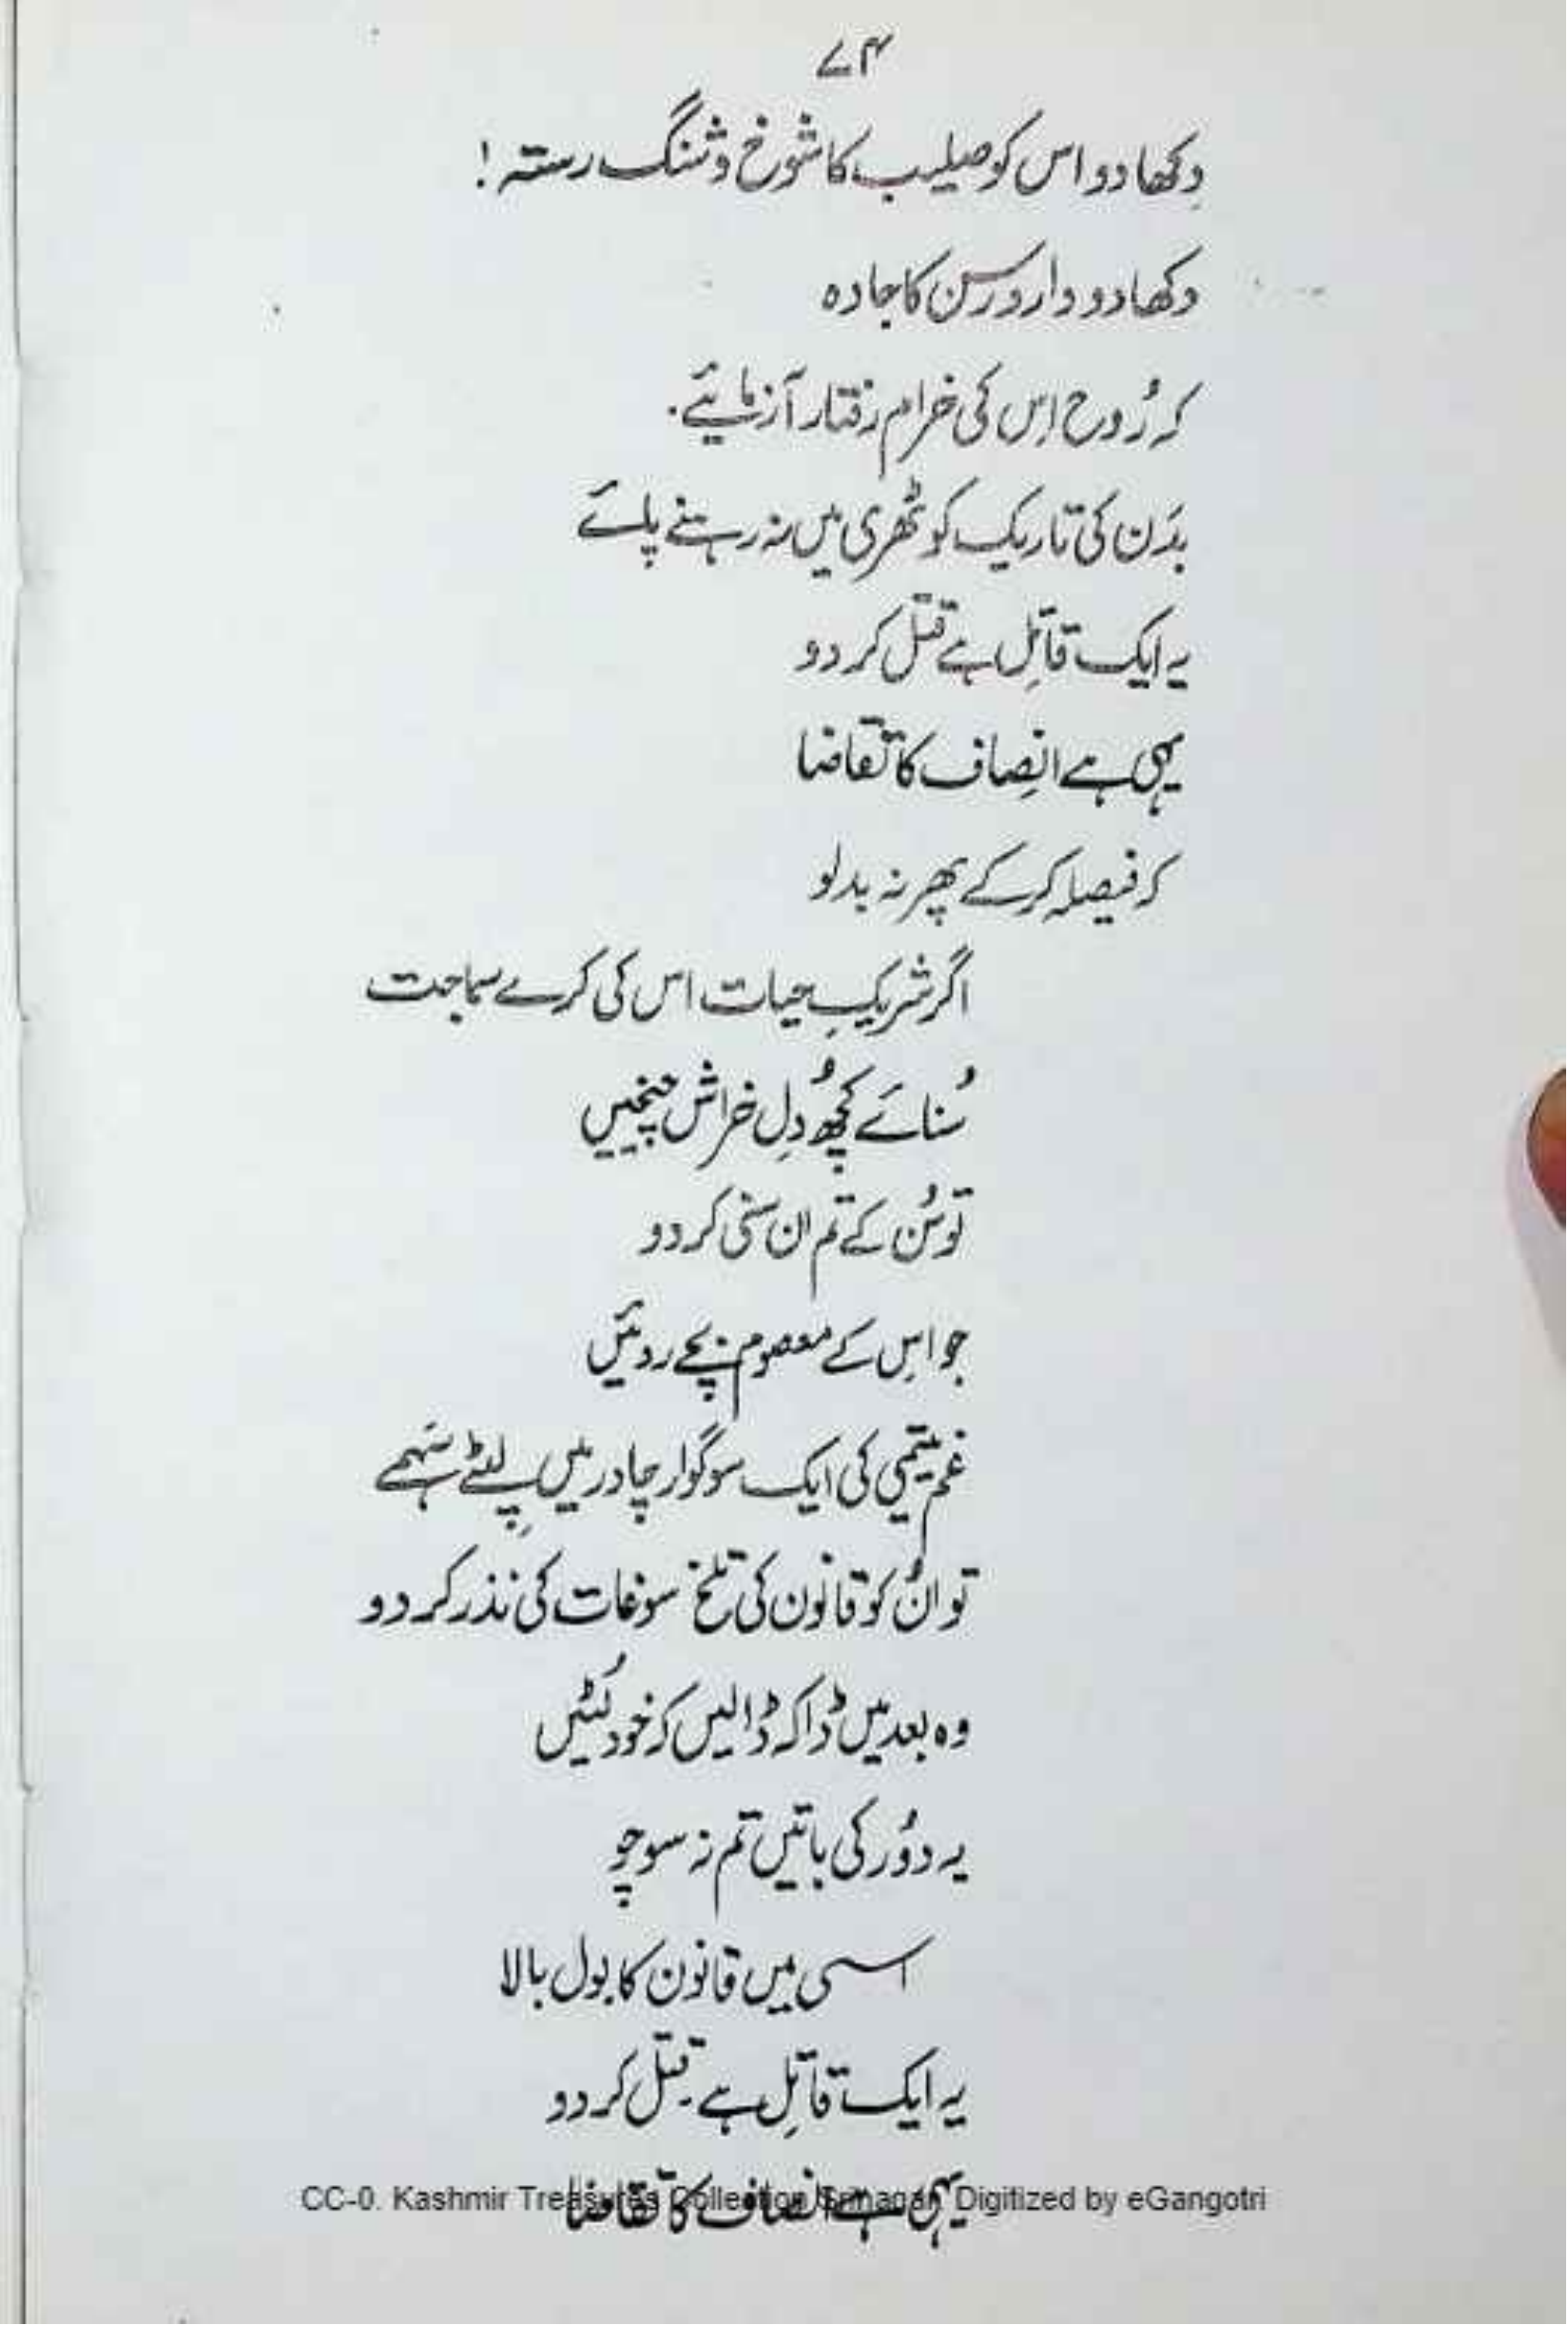 ۷۴
دِکھا دو اس کو صیلیب کا شوخ و شنگ رستہ!
دکھا دو دار و رسن کا جادہ
کہ رُوح اِس کی خرام رفتار آزمائیے.
بدَن کی تاریک کوٹھری میں نہ رہنے پائے
یہ ایک قاتِل ہے قتل کر دو
یہی ہے انِصاف کا تقاضا
کہ فیصلہ کر کے پھر نہ بدلو
اگر شریکِ حیات اس کی کرے سماجت
سُنائے کچھُ دِل خراش چیخیں
تو سُن کے تم ان سنی کر دو
جو اسِ کے معصوم بچے روئیں
غم یتیمی کی ایک سوگوار چادر میں لِپٹے سَہمے
تو انُ کو قانون کی تلخ سوغات کی نذر کر دو
وہ بعد میں ڈاکہ ڈالیں کہ خود لُٹیں
یہ دوُر کی باتیں تم نہ سوچو
اسی میں قانون کا بول بالا
یہ ایک قاتِل ہے۔ قتل کر دو
یہی ہے انصاف کا تقاضا
CC-0. Kashmir Treasures Collection Srinagar. Digitized by eGangotri